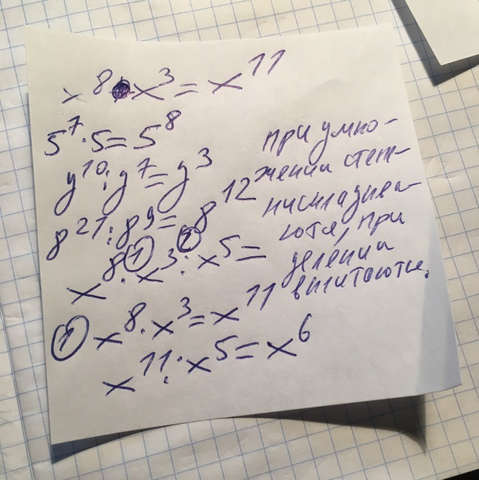 x⁸ · x³ = x¹¹
5⁷ · 5 = 5⁸
y¹⁰ : y⁷ = y³
8²¹ : 8⁹ = 8¹²
x⁸ ① · x³ ② : x⁵ =
① x⁸ · x³ = x¹¹
x¹¹ : x⁵ = x⁶
при умно-
жении степ-
ни складыва-
ются, при
делении
вычитаются.